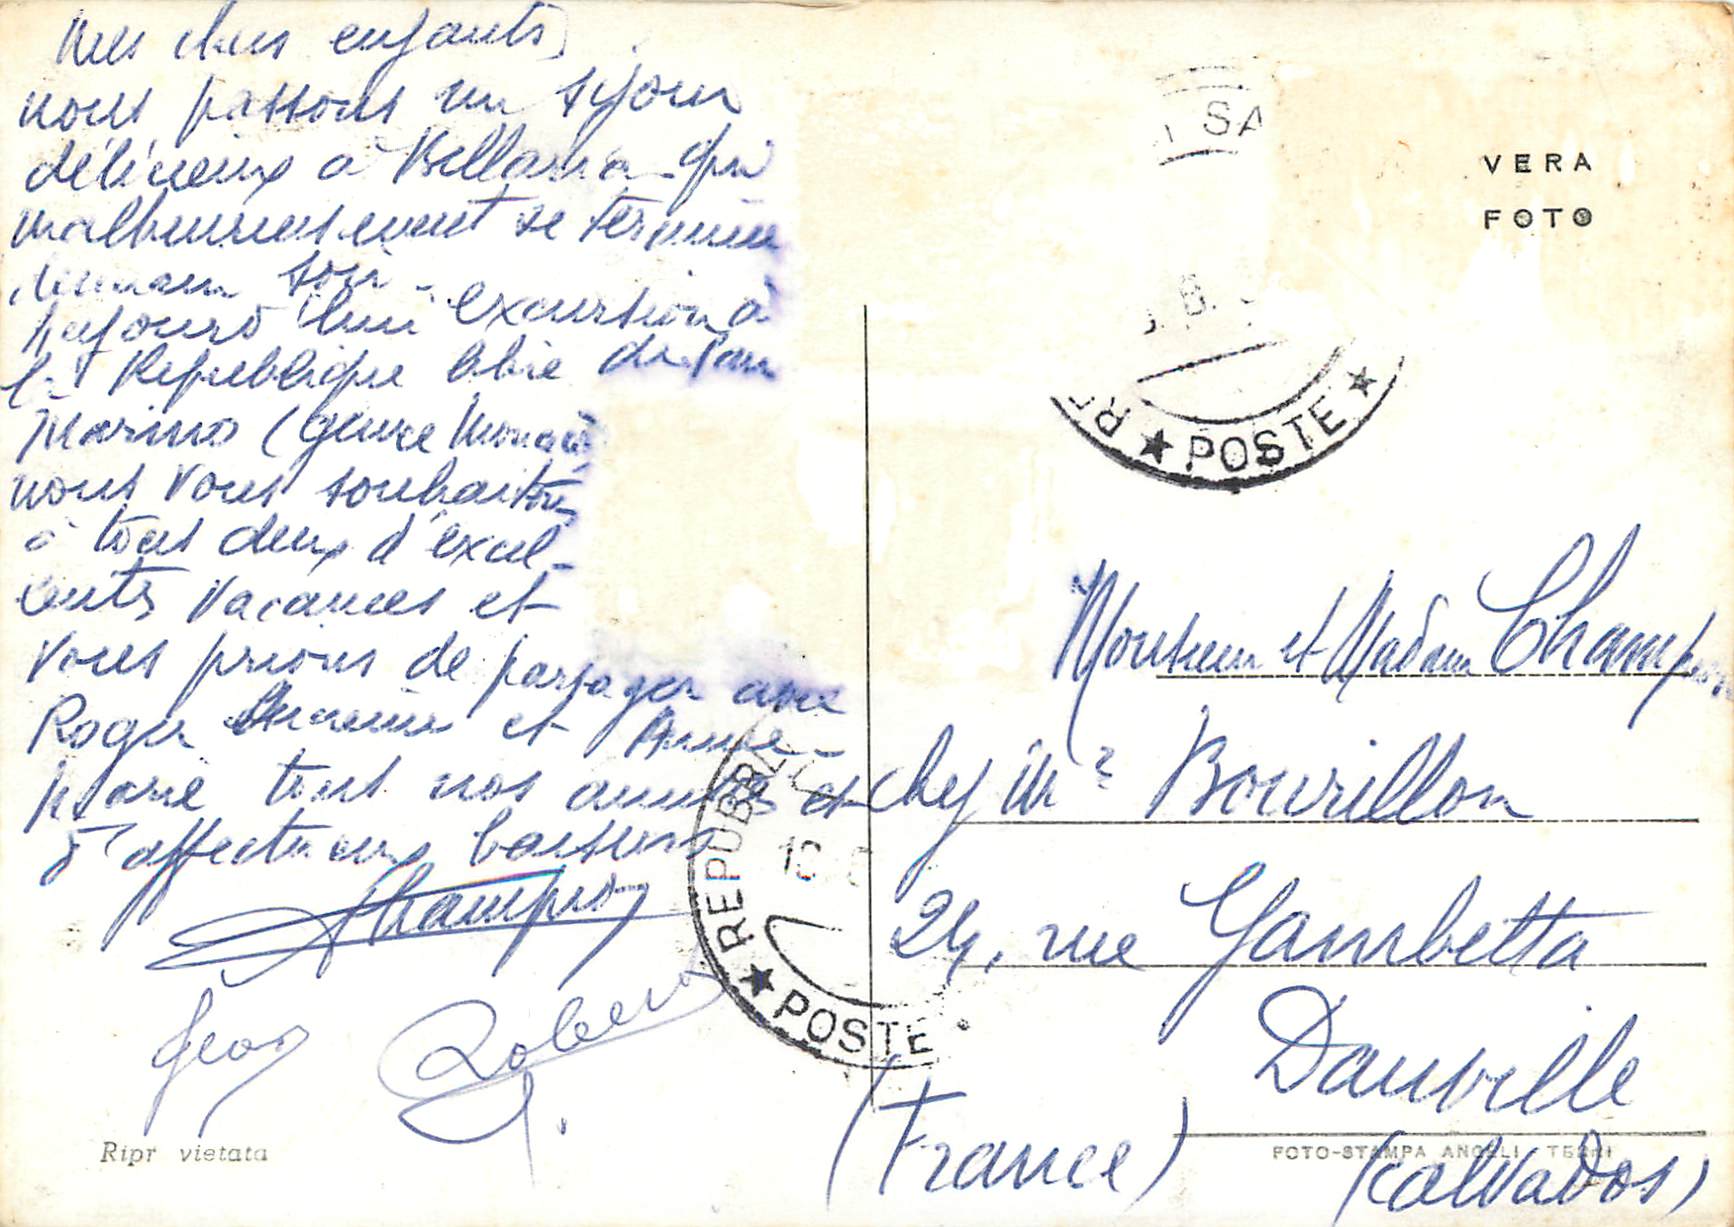 Mes chers enfants,
nous passons un séjour
délicieux à Bellaria qui
malheureusement se termine
demain soir.
Aujourd'hui excursion à
la République libre de San
Marino (genre Monaco
nous vous souhaitons
à tous deux d'excel-
lentes vacances et
vous prions de partager avec
Roger et Anne-
Marie tous nos amitiés et
d'affectueux baisers
Champion
Robert
Ripr vietata
SA
B.
RE ★ POSTE ★
REPUBBL
★ POSTE
VERA
FOTO
Monsieur et Madame Champion
chez Mr Bourillon
24, rue Gambetta
Dauville
(France)
(Calvados)
FOTO-STAMPA ANGELI TERNI